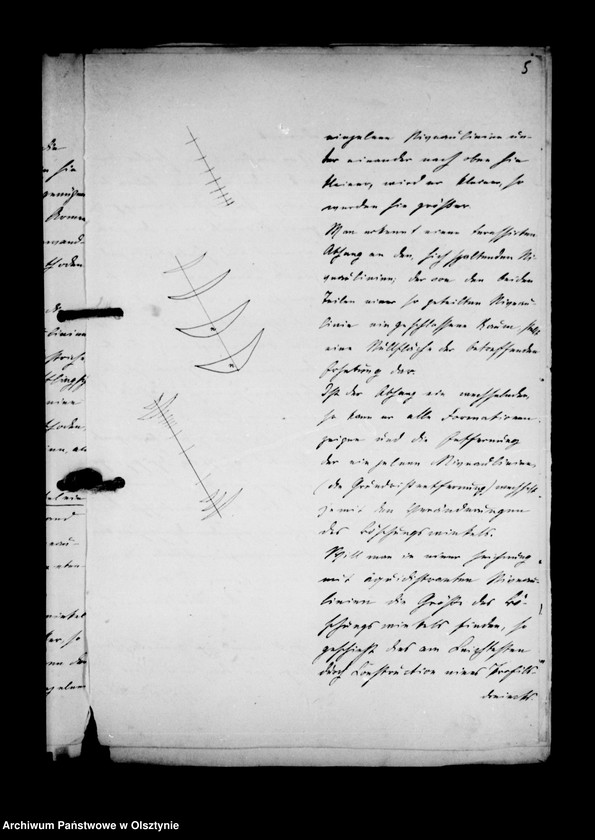 5
einzelnen Niveaulinien un-
ter einander nach oben hin
kleiner, wird er kleiner, so
werden sie größer.
Man erkennt einen terassirten
Abhang an den, sich spaltenden Ni-
veaulinien; der von den beiden
Teilen einer so geteilten Niveau-
linie eingeschlossene Raum, stellt
eine Nullfläche der betreffenden
Erhebung dar.
Ist der Abhang ein wechselnder,
so kann er alle Formationen
zeigen und die Entfernung
der einzelnen Niveaulinien,
(die Grundrißentfernung) wechselt
je mit den Veränderungen
des Böschungswinkels.
Will man in einer Zeichnung
mit äquidistanten Niveau-
linien die Größe des Bö-
schungswinkels finden, so
geschieht das am Leichtesten
durch Construction eines Profils-
dreiecks.
Archiwum Państwowe w Olsztynie